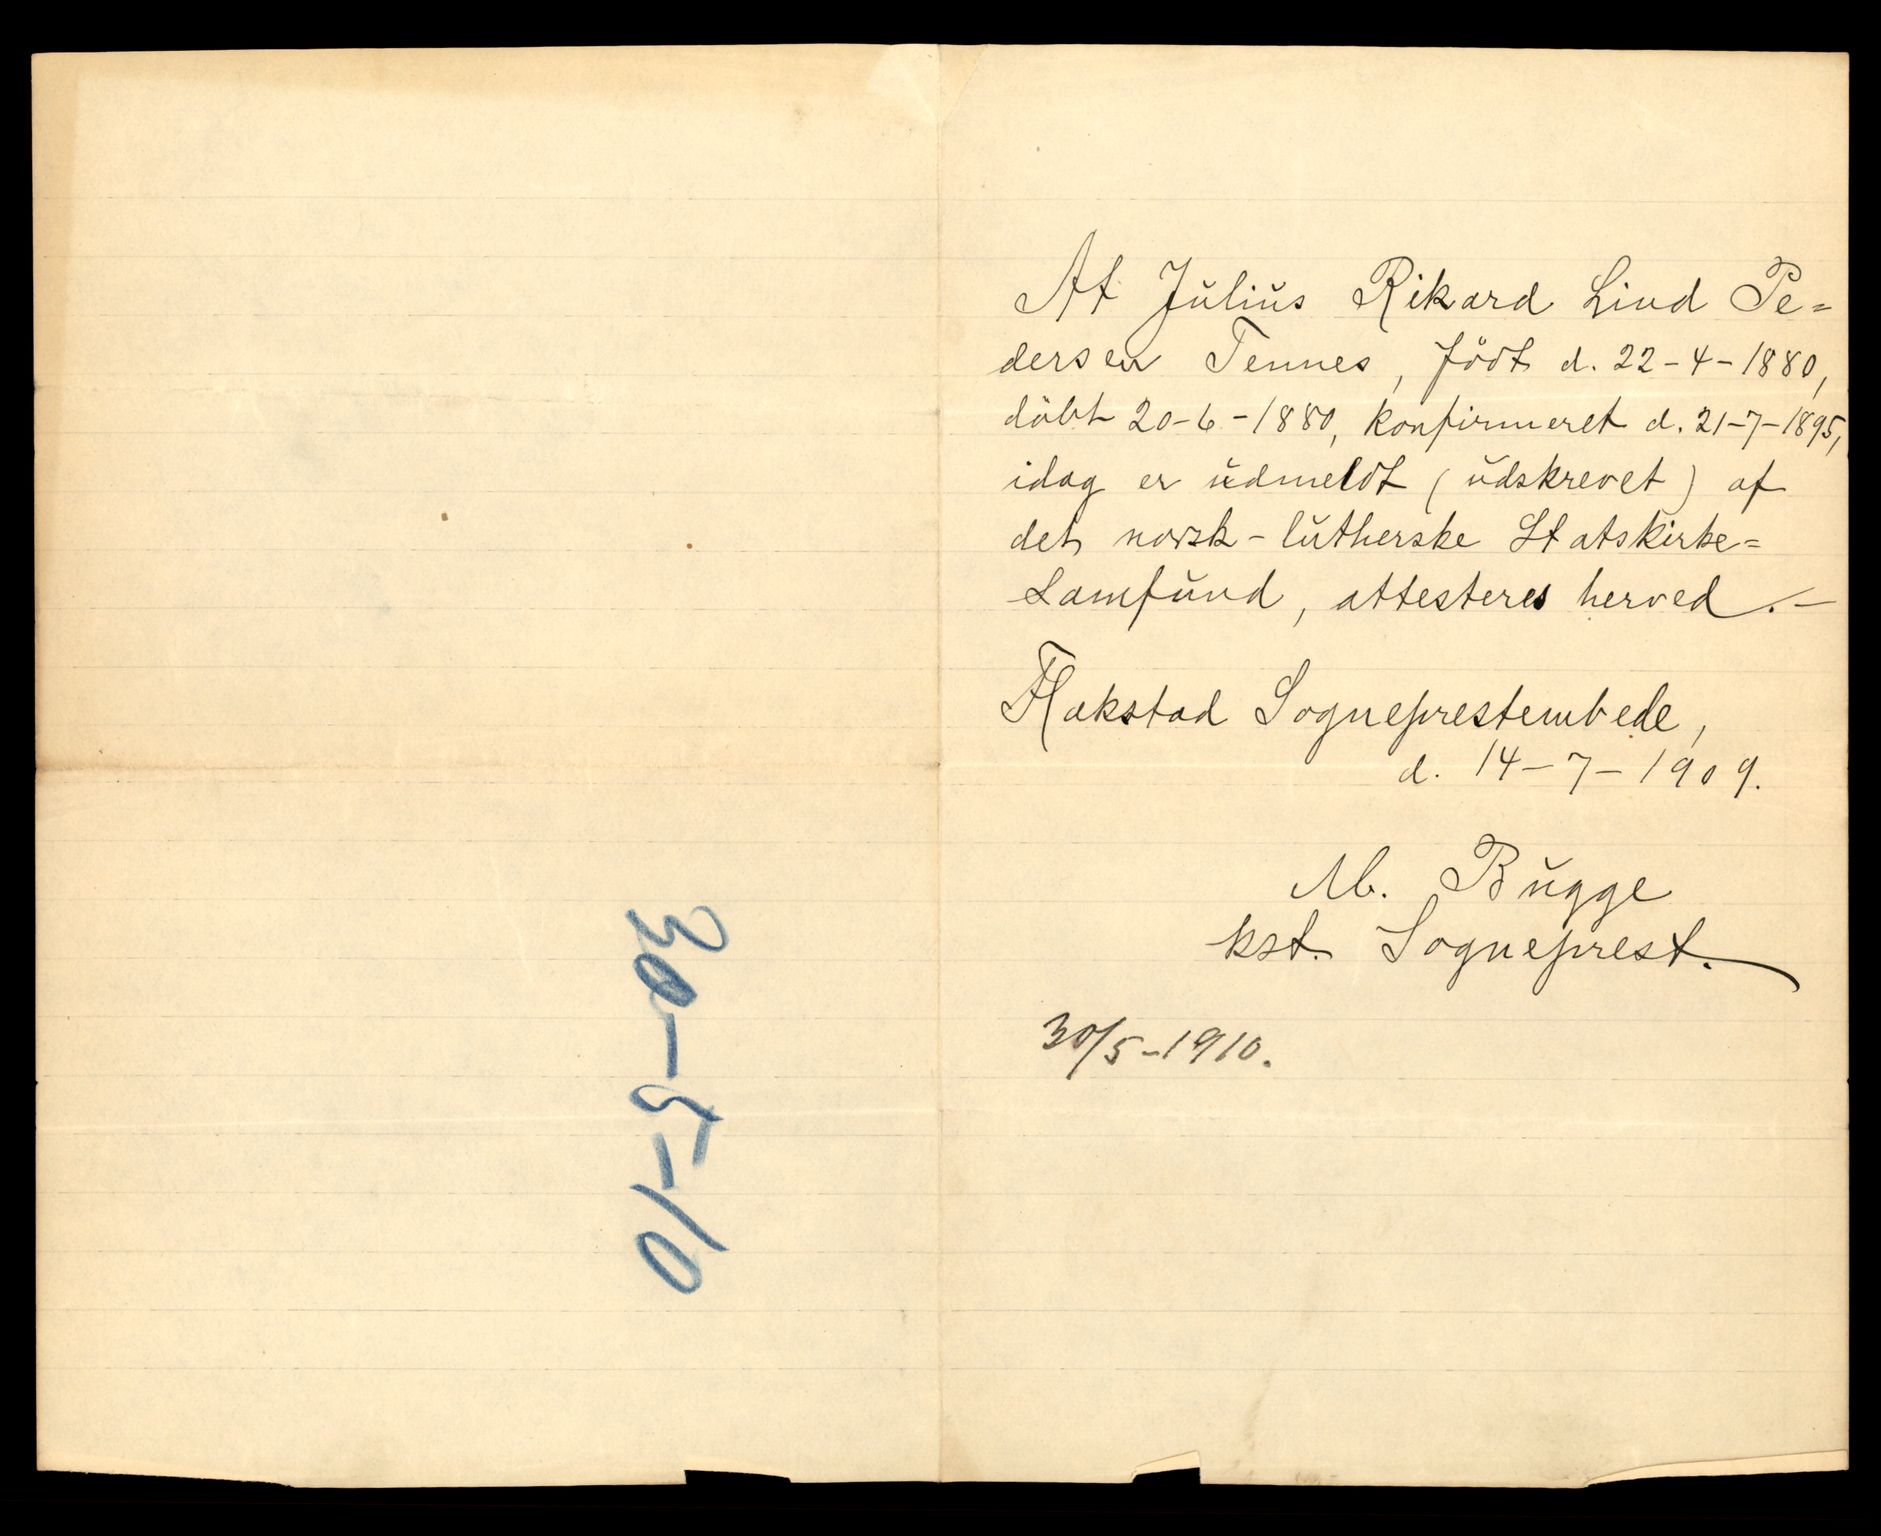 At Julius Rikard Lind Pe=
dersen Tennes, födt d. 22-4-1880,
döbt 20-6-1880, konfirmeret d. 21-7-1895,
idag er udmeldt (udskrevet) af
det norsk-lutherske Statskirke=
Samfund, attesteres herved.-
Flakstad Sogneprestembede,
d. 14-7-1909.
M. Bugge
kst. Sogneprest.
30/5-1910.
30-5-10